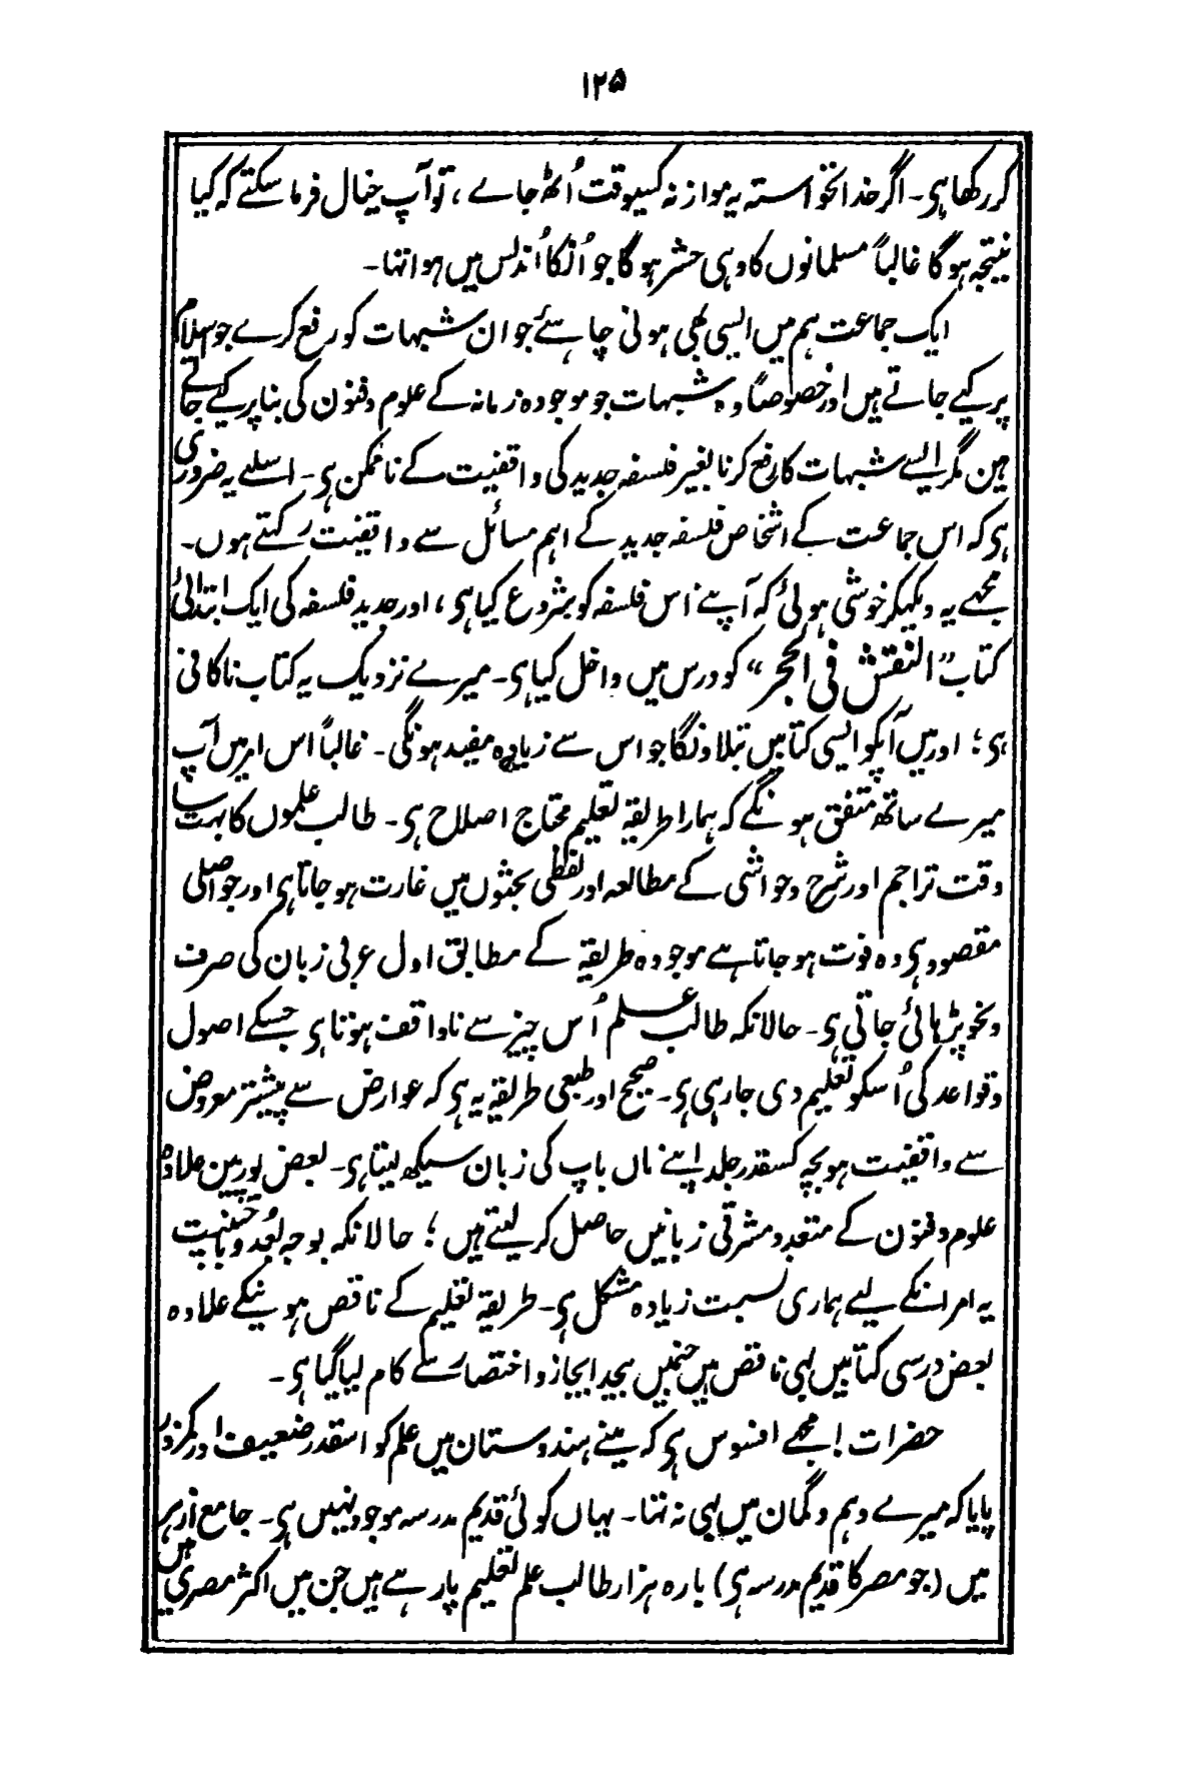 ۱۲۵
کر رکھا ہی۔ اگر خدانخواستہ یہ موازنہ کسیوقت اُٹھ جاے، تو آپ خیال فرما سکتے کہ کیا
نتیجہ ہو گا غالباً مسلمانوں کا وہی حشر ہو گا جو اُنکا اُندلس میں ہوا تہا۔
ایک جماعت ہم میں ایسی بھی ہونی چاہئے جو ان شبہات کو رفع کرے جو اسلام
پر کیے جاتے ہیں اور خصوصاً وہ شبہات جو موجودہ زمانہ کے علوم و فنون کی بنا پر کیے جاتے
ہین مگر ایسے شبہات کا رفع کرنا بغیر فلسفہ جدید کی واقفیت کے ناممکن ہی۔ اسلیے یہ ضروری
ہی کہ اس جماعت کے اشخاص فلسفہ جدید کے اہم مسائل سے واقفیت رکہتے ہوں۔
مجھے یہ دیکہکر خوشی ہوئی کہ آپنے اس فلسفہ کو شروع کیا ہی، اور جدید فلسفہ کی ایک ابتدائی
کتاب "النقش فی الحجر" کو درس میں داخل کیا ہی۔ میرے نزدیک یہ کتاب ناکافی
ہی؛ اور میں آپکو ایسی کتابیں بتلاونگا جو اس سے زیادہ مفید ہونگی۔ غالباً اس امر میں آپ
میرے ساتھ متفق ہونگے کہ ہمارا طریقہ تعلیم محتاج اصلاح ہی۔ طالب علموں کا بہت سا
وقت تراجم اور شرح و حواشی کے مطالعہ اور لفظی بحثوں میں غارت ہو جاتا ہی اور جو اصلی
مقصود ہی وہ فوت ہو جاتا ہے موجودہ طریقہ کے مطابق اول عربی زبان کی صرف
و نحو پڑہائی جاتی ہی۔ حالانکہ طالب علم اُس چیز سے ناواقف ہوتا ہی جسکے اصول
و قواعد کی اُسکو تعلیم دی جا رہی ہی۔ صحیح اور طبعی طریقہ یہ ہی کہ عوارض سے پیشتر معروض
سے واقفیت ہو بچہ کسقدر جلد اپنے ماں باپ کی زبان سیکھ لیتا ہی۔ بعض یورپین علاوہ
علوم و فنون کے متعدد مشرقی زبانیں حاصل کر لیتے ہیں؛ حالانکہ بوجہ بُعد و اجنبیت
یہ امر انکے لیے ہماری نسبت زیادہ مشکل ہی۔ طریقہ تعلیم کے ناقص ہونیکے علاوہ
بعض درسی کتابیں بہی ناقص ہیں جنمیں بیحد ایجاز و اختصار سے کام لیا گیا ہی۔
حضرات! مجھے افسوس ہی کہ مینے ہندوستان میں علم کو اسقدر ضعیف اور کمزور
پایا کہ میرے وہم و گمان میں بہی نہ تہا۔ یہاں کوئی قدیم مدرسہ موجود نہیں ہی۔ جامع ازہر
میں (جو مصر کا قدیم مدرسہ ہی) بارہ ہزار طالب علم تعلیم پا رہے ہیں جن میں اکثر مصری ہیں